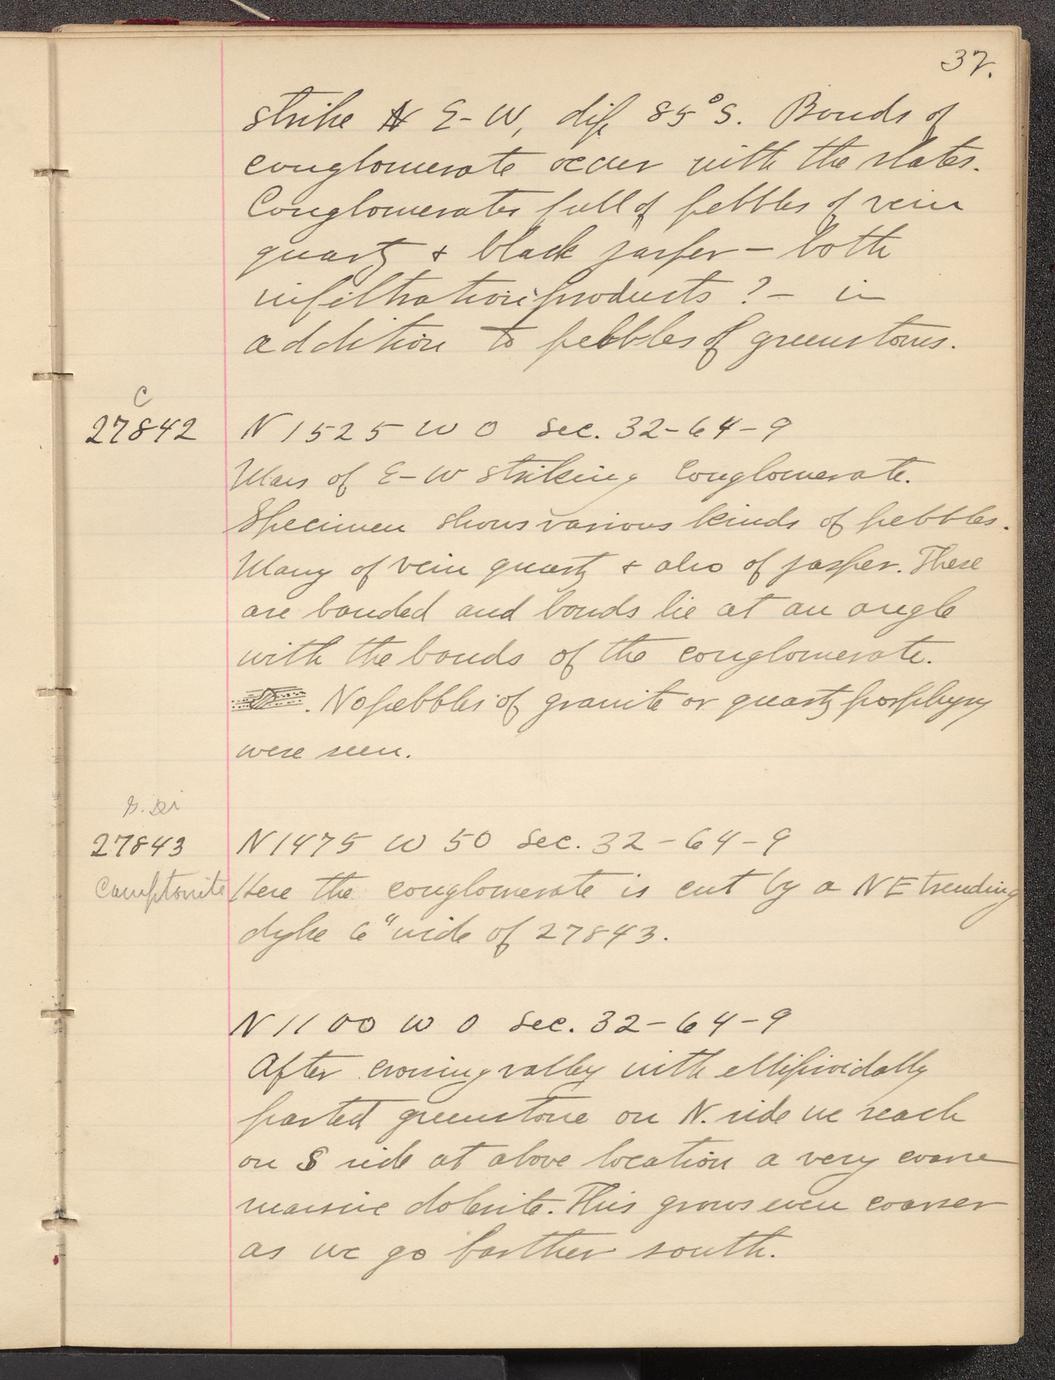 37.
strike N E-W, dip 85° S. Bands of
conglomerate occur with the slates.
Conglomerates full of pebbles of vein
quartz & black jasper – both
infiltration products ? – in
addition to pebbles of greenstones.
C
27842 N 1525 W 0 Sec. 32-64-9
Mass of E-W striking conglomerate.
Specimen shows various kinds of pebbles.
Many of vein quartz & also of jasper. These
are banded and bands lie at an angle
with the bands of the conglomerate.
. No pebbles of granite or quartz porphyry
were seen.
27843 N 1475 W 50 Sec. 32-64-9
Camptonite Here the conglomerate is cut by a NE trending
dyke 6" wide of 27843.
N 1100 W 0 Sec. 32-64-9
After crossing valley with ellipsoidally
parted greenstone on N. side we reach
on S side at above location a very coarse
massive dolerite. This grows even coarser
as we go farther south.